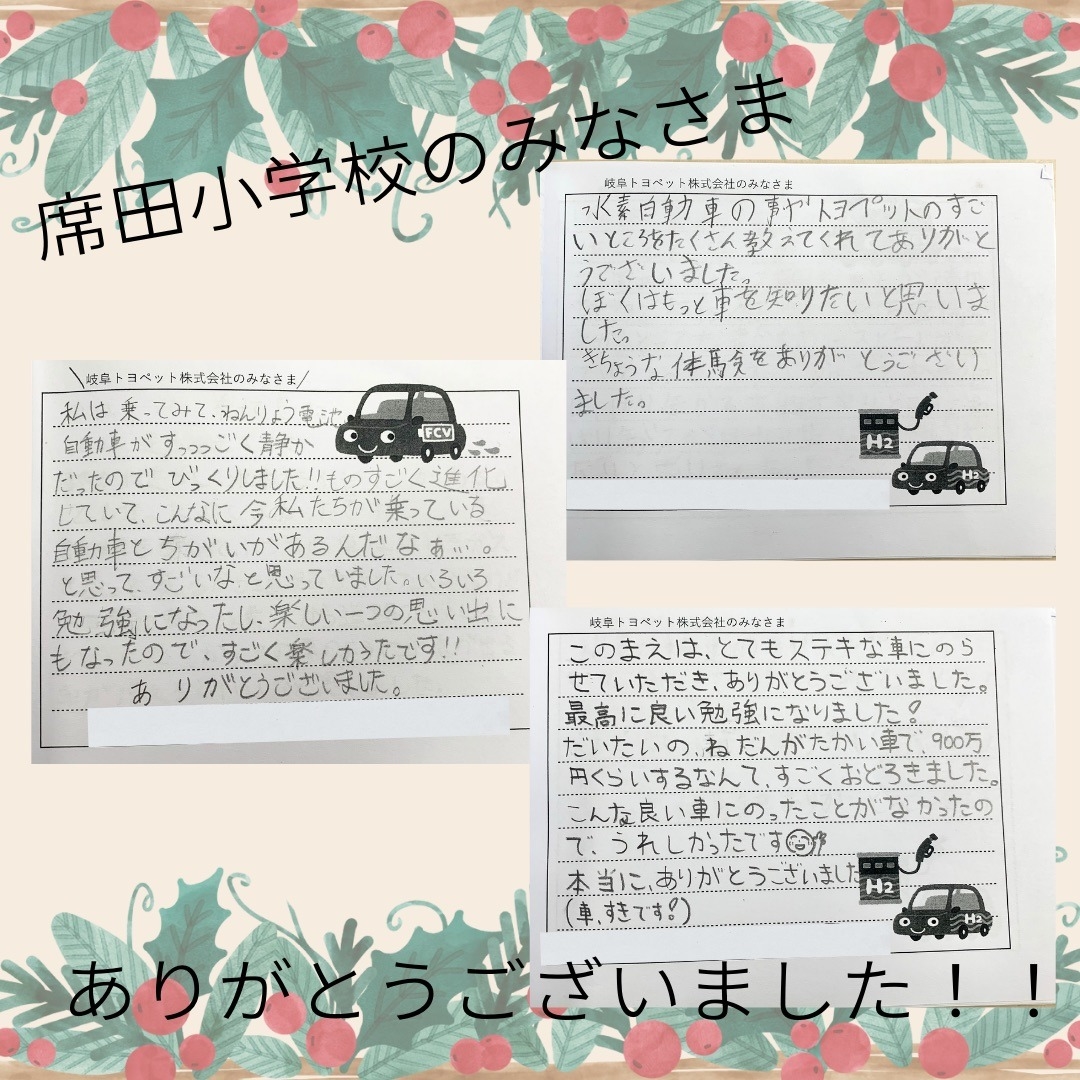 席田小学校のみなさま
岐阜トヨペット株式会社のみなさま
水素自動車の事やトヨペットのすご
いところをたくさん教えてくれてありがと
うございました。
ぼくはもっと車を知りたいと思いま
した。
きちょうな体験をありがとうござい
ました。
H2
H2
岐阜トヨペット株式会社のみなさま
私は乗ってみて、ねんりょう電池
自動車がすっっっごく静か
だったのでびっくりしました!!ものすごく進化
していて、こんなに今私たちが乗っている
自動車とちがいがあるんだなぁ…。
と思って、すごいなと思っていました。いろいろ
勉強になったし、楽しい一つの思い出に
もなったので、すごく楽しかったです!!
ありがとうございました。
FCV
岐阜トヨペット株式会社のみなさま
このまえは、とてもステキな車にのら
せていただき、ありがとうございました。
最高に良い勉強になりました!
だいたいの、ねだんがたかい車で、900万
円くらいするなんて、すごくおどろきました。
こんな良い車にのったことがなかったの
で、うれしかったです
本当に、ありがとうございました
(車、すきです!)
H2
H2
ありがとうございました！！